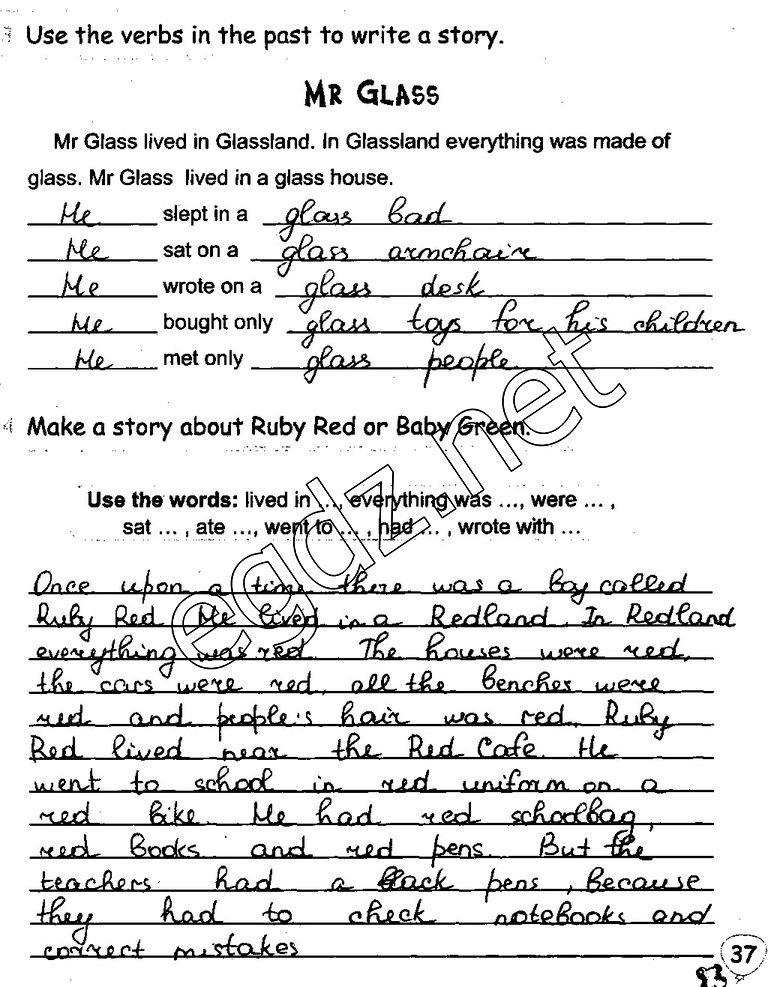 3 Use the verbs in the past to write a story.
MR GLASS
Mr Glass lived in Glassland. In Glassland everything was made of
glass. Mr Glass lived in a glass house.
He slept in a glass bad
He sat on a glass armchaire
He wrote on a glass desk
He bought only glass toys for his children
He met only glass people
4 Make a story about Ruby Red or Baby Green.
Use the words: lived in ..., everything was ..., were ... ,
sat ... , ate ..., went to ... , had ... , wrote with ...
Once upon a time there was a boy called
Ruby Red. He lived in a Redland. In Redland
everything was red. The houses were red,
the cars were red, all the benches were
red and people's hair was red. Ruby
Red lived near the Red Cafe. He
went to school in red uniform on a
red bike. He had red schoolbag,
red books and red pens. But the
teachers had a black pens, because
they had to check notebooks and
correct mistakes
egdz.net
37
83